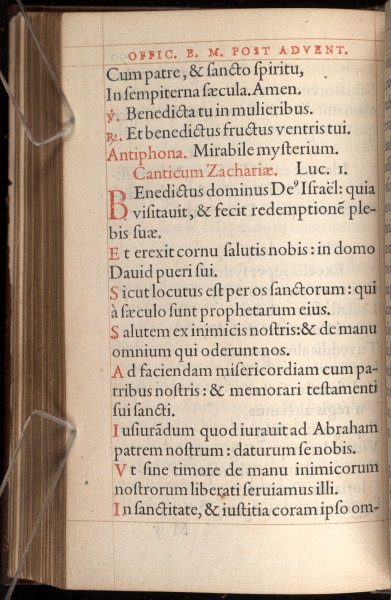 OFFIC. B. M. POST ADVENT.
Cum patre, & ſancto ſpiritu,
In ſempiterna ſæcula. Amen.
℣. Benedicta tu in mulieribus.
℟. Et benedictus fructus ventris tui.
Antiphona. Mirabile myſterium.
Canticum Zachariæ. Luc. 1.
BEnedictus dominus Deꝰ Iſraël: quia
viſitauit, & fecit redemptionẽ ple-
bis ſuæ.
Et erexit cornu ſalutis nobis: in domo
Dauid pueri ſui.
Sicut locutus eſt per os ſanctorum: qui
à ſæculo ſunt prophetarum eius.
Salutem ex inimicis noſtris: & de manu
omnium qui oderunt nos.
Ad faciendam miſericordiam cum pa-
tribus noſtris: & memorari teſtamenti
ſui ſancti.
Iuſiurãdum quod iurauit ad Abraham
patrem noſtrum: daturum ſe nobis.
Vt ſine timore de manu inimicorum
noſtrorum liberati ſeruiamus illi.
In ſanctitate, & iuſtitia coram ipſo om-